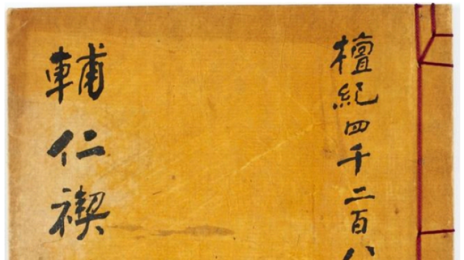 檀紀四千二百八
輔仁禊